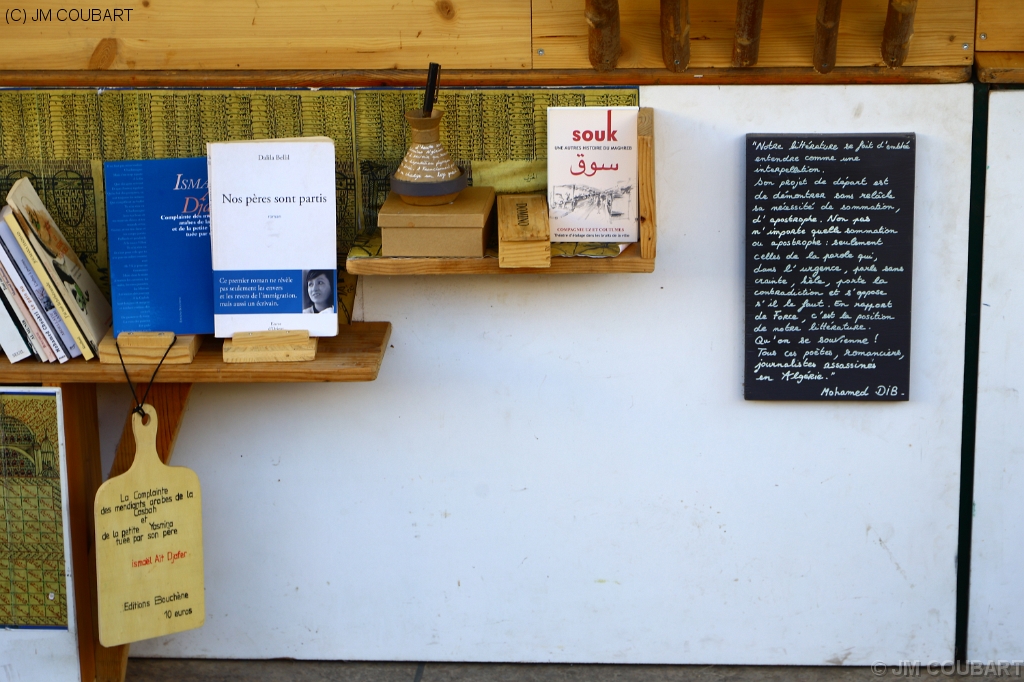 (C) JM COUBART
ISMA
Dj
Complainte des
des
et de la petite
tuée par
Dalila Bellil
Nos pères sont partis
roman
Ce premier roman ne révèle
pas seulement les envers
et les revers de l'immigration,
mais aussi un écrivain.
DOMINO
souk
UNE AUTRES HISTOIRE DU MAGHREB
سوق
COMPAGNIE UZ ET COUTUMES
"Notre littérature se fait d'emblée
entendre comme une
interpellation.
Son projet de départ est
de démontrer sans relâche
sa nécessité de sommation,
d'apostrophe. Non pas
n'importe quelle sommation
ou apostrophe : seulement
celles de la parole qui,
dans l'urgence, parle sans
crainte, hèle, porte la
contradiction et s'oppose
s'il le faut. En rapport
de Force, c'est la position
de notre littérature.
Qu'on se souvienne !
Tous ces poètes, romanciers,
journalistes assassinés
en Algérie."
Mohamed DIB.
La Complainte
des mendiants arabes de la
Casbah
et
de la petite Yasmina
tuée par son père
Ismaël Aït Djafer
Editions Bouchène
10 euros
© JM COUBART